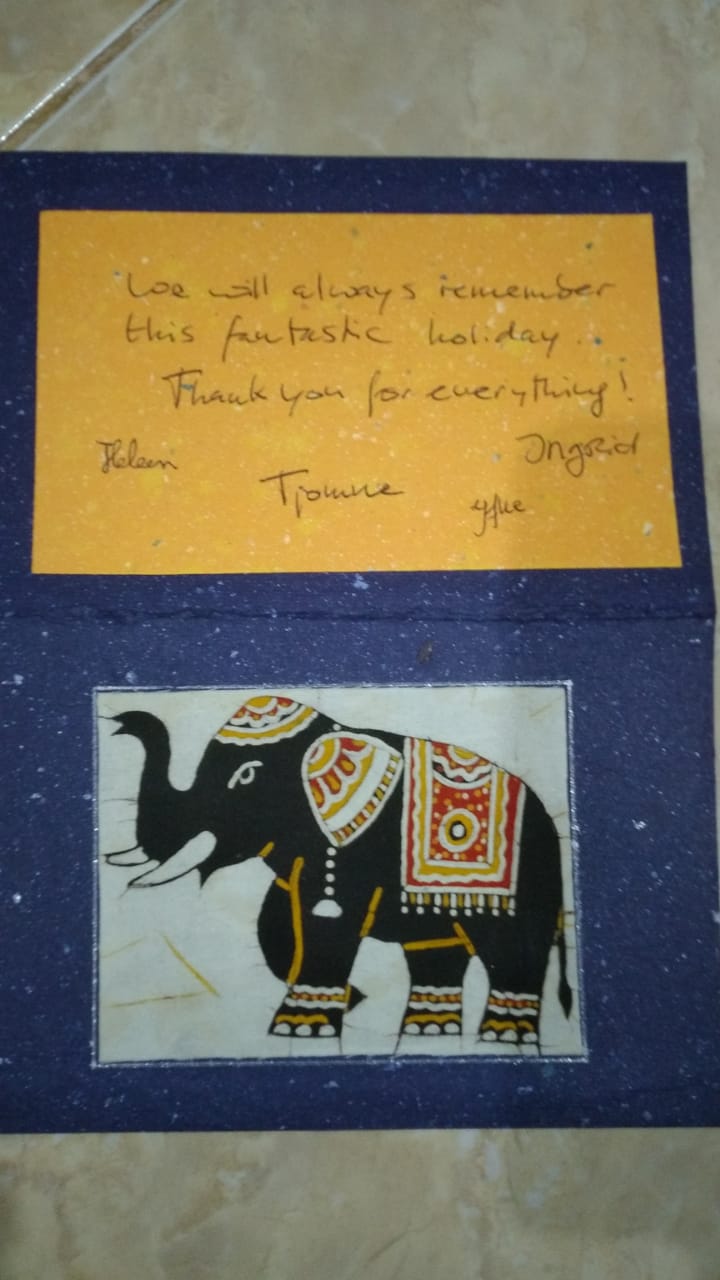 We will always remember
this fantastic holiday..
Thank you for everything!
Heleen Ingrid
Tjomme Yfke